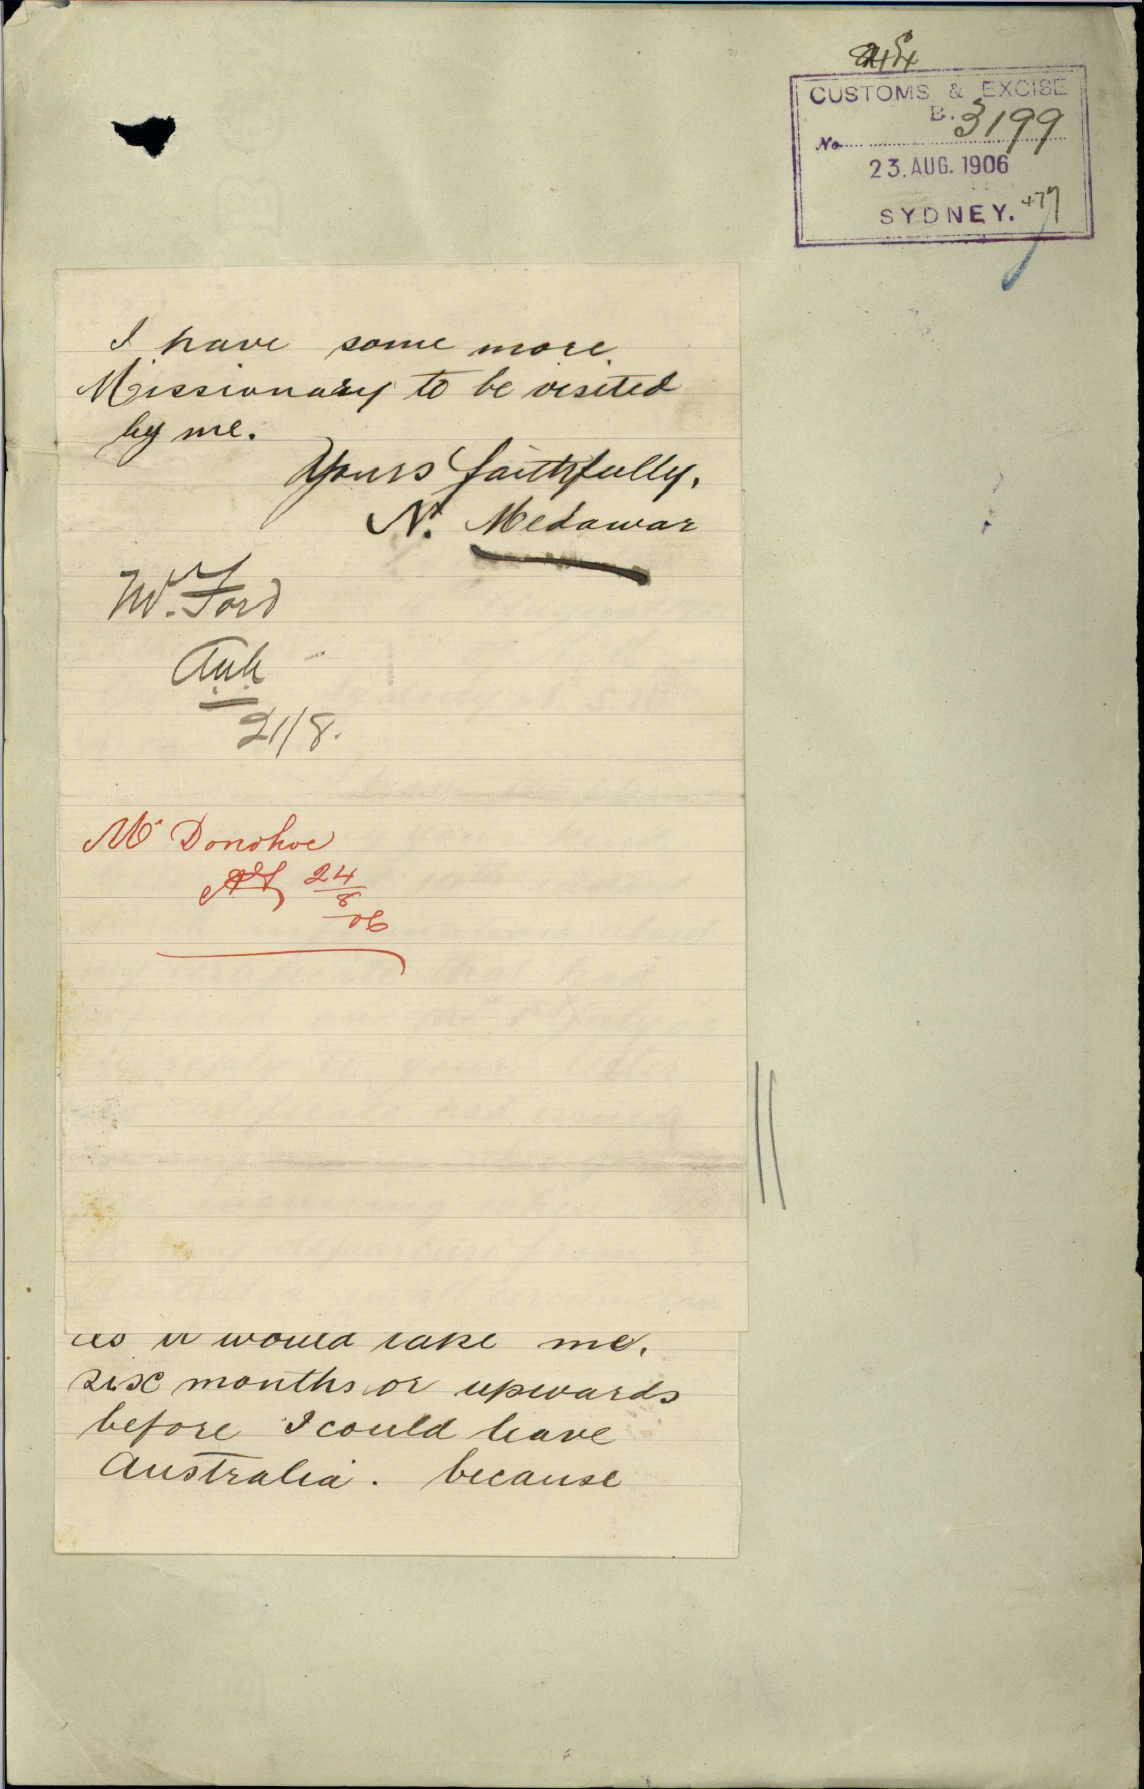 CUSTOMS & EXCISE
B. 3199
No
23. AUG. 1906
SYDNEY. 477
I have some more
Missionary to be visited
by me.
Yours faithfully,
N. Medawar
Mr. Ford
21/8.
Mr Donohoe
24/8/06
it would take me,
six months or upwards
before I could leave
Australia. because